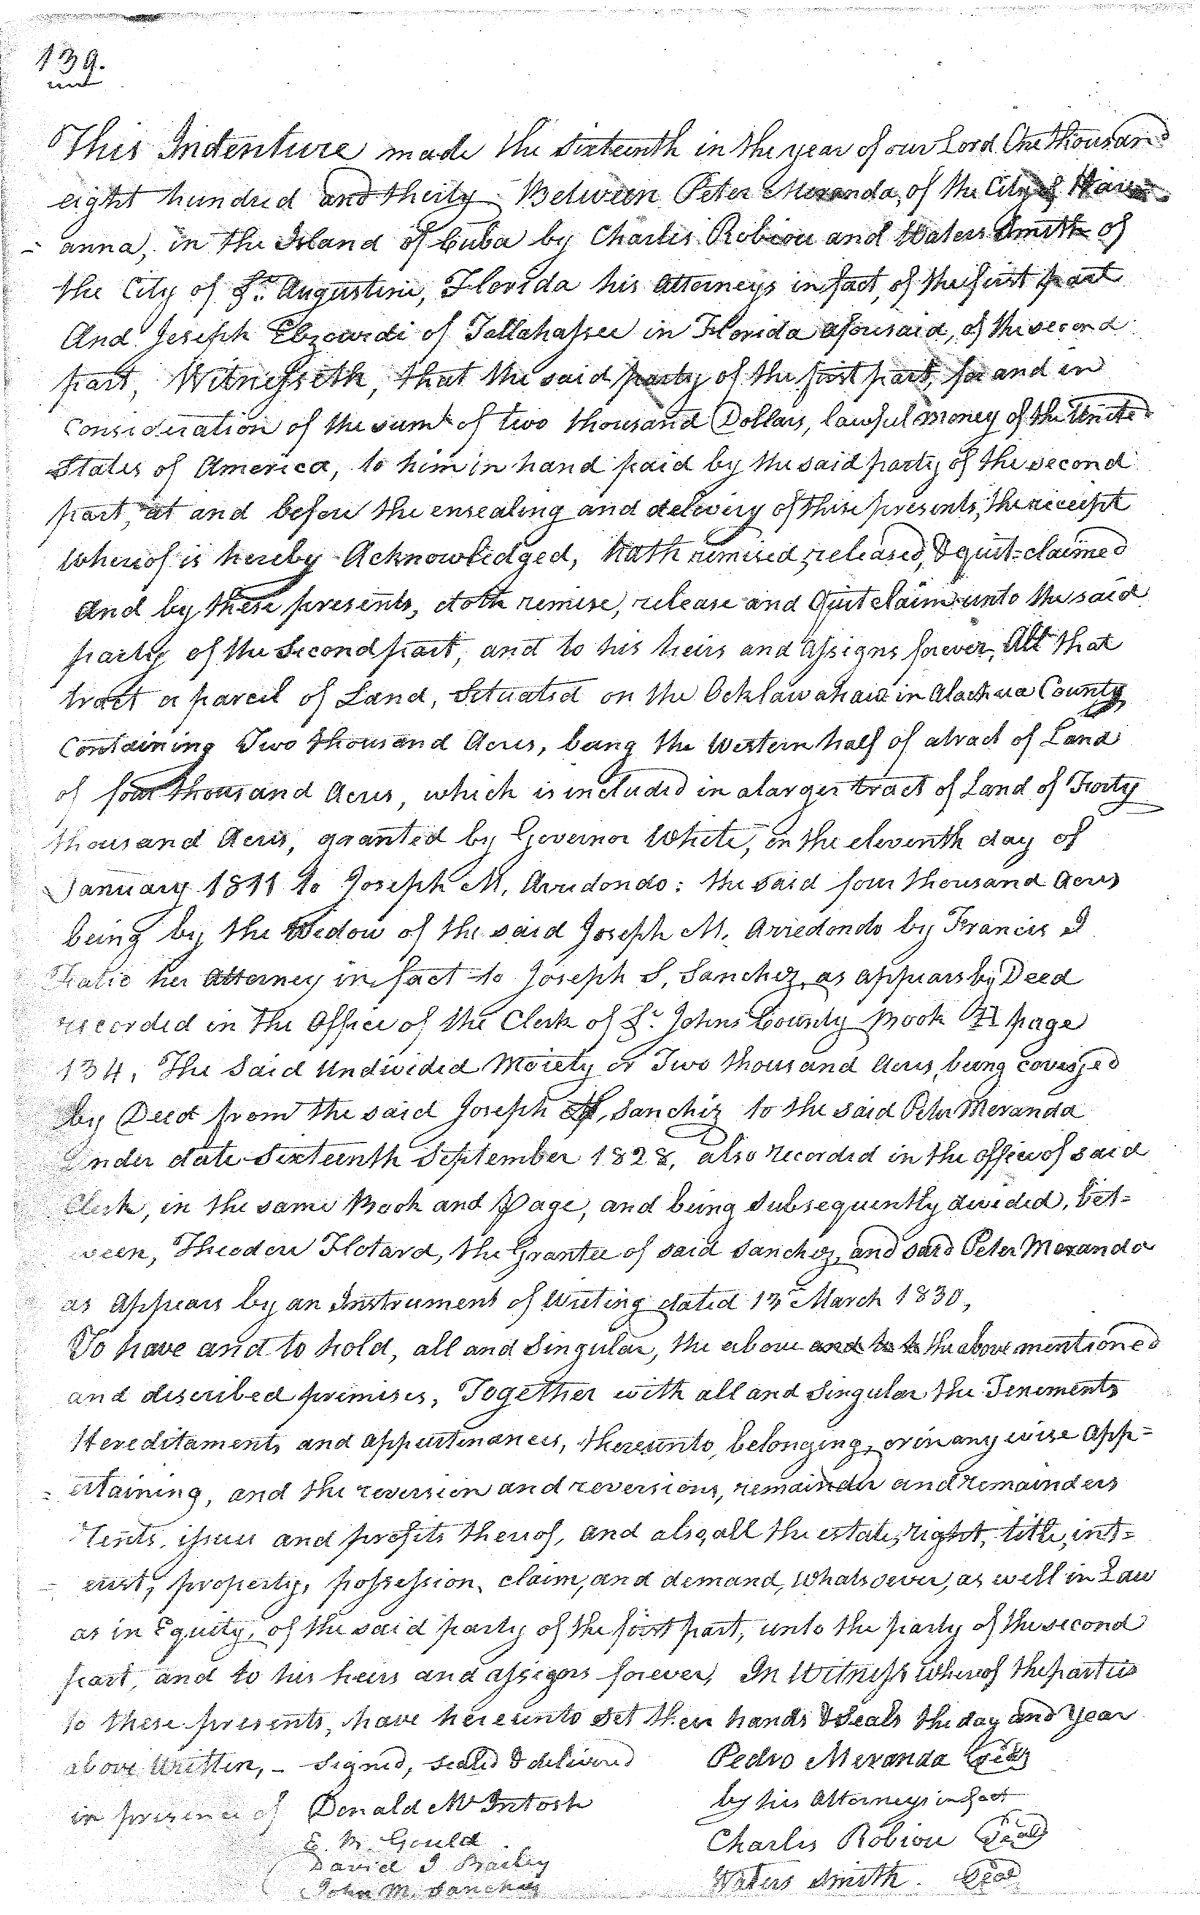 139.
This Indenture made the sixteenth in the year of our Lord One thousand
eight hundred and thirty Between Peter Meranda, of the City of Hav
= anna, in the Island of Cuba by Charles Robiou and Waters Smith of
the City of St. Augustine, Florida his Attorneys in fact, of the first part
And Joseph of Tallahassee in Florida aforesaid, of the second
part, Witnesseth, that the said party of the first part, for and in
consideration of the sum of two thousand Dollars, lawful money of the United
States of America, to him in hand paid by the said party of the second
part, at and before the ensealing and delivery of these presents, the receipt
whereof is hereby Acknowledged, hath remised, released, & quit=claimed
And by these presents, doth remise, release and Quit claim unto the said
party of the Second part, and to his heirs and Assigns forever, All that
tract or parcel of Land, Situated on the Ocklawahaw in Alachua County
Containing Two thousand Acres, being the Western half of a tract of Land
of four thousand Acres, which is included in a larger tract of Land of Forty
thousand Acres, granted by Governor White, on the eleventh day of
January 1811 to Joseph M. Arredondo: the said four thousand Acres
being by the Widow of the said Joseph M. Arredondo by Francis J
Fatio her Attorney in fact to Joseph S, Sanchez, as appears by Deed
recorded in the Office of the Clerk of St. Johns County Book H page
134, The Said Undivided Moiety or Two thousand Acres, being conveyed
by Deed from the said Joseph S, Sanchez to the said Peter Meranda
Under date Sixteenth September 1828, also recorded in the office of said
Clerk, in the same Book and Page, and being subsequently divided, bet=
ween, Theodore Flotard, the Grantee of said Sanchez, and said Peter Meranda
as Appears by an Instrument of Writing dated 13th March 1830,
To have and to hold, all and Singular, the above and to the the above mentioned
and described premises, Together with all and Singular the Tenements
Hereditaments and appurtenances, thereunto, belonging, or in any wise App=
= ertaining, and the reversion and reversions, remainder and remainders
rents, issues and profits thereof, and also, all the estate, right, title, int=
= erest, property, possession, claim, and demand, Whatsoever, as well in Law
as in Equity, of the said party of the first part, unto the party of the second
part, and to his heirs and assigns forever, In Witness Whereof the parties
to these presents, have hereunto set their hands & Seals the day and Year
above Written, _ Signed, sealed & delivered Pedro Meranda Seal
in presence of Donald McIntosh by his Attorneys in fact
E. B. Gould Charles Robiou Seal
David J Bailey
John M. Sanchez Waters Smith. Seal